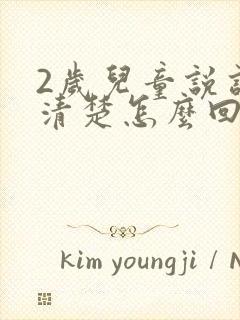 2歲兒童說
清楚怎麼回
kim youngji / N